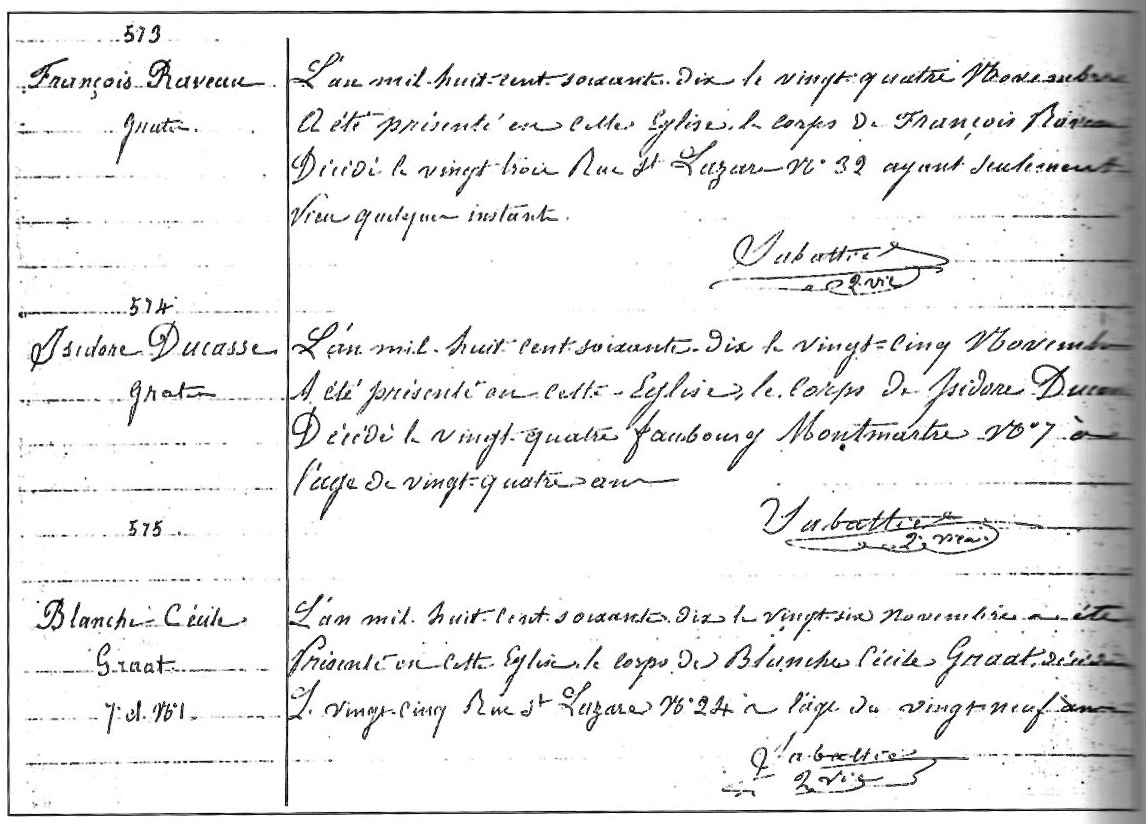 573
François Raveau
gratis.
L'an mil-huit-cent soixante-dix le vingt-quatre Novembre
A été présenté en cette Eglise le corps de François Raveau
Décédé le vingt trois Rue St Lazare N° 32 ayant seulement
Vieu quelques instants.
Sabattier
2 vic
574
Isidore Ducasse
gratis
L'an mil-huit-cent-soixante-dix le vingt-cinq Novembre
A été présenté en cette Eglise, le corps de Isidore Ducasse
Décédé le vingt-quatre faubourg Montmartre N° 7 à
l'age de vingt-quatre ans
Sabattier
2e vicai
575
Blanche-Cécile
Graat
7e cl. N° 1
L'an mil-huit-cent-soixante-dix le vingt-six novembre a été
Présenté en cette Eglise, le corps de Blanche Cécile Graat, décédée
Le vingt-cinq Rue St Lazare N° 24 à l'age de vingt-neuf ans
Sabattier
2 vic